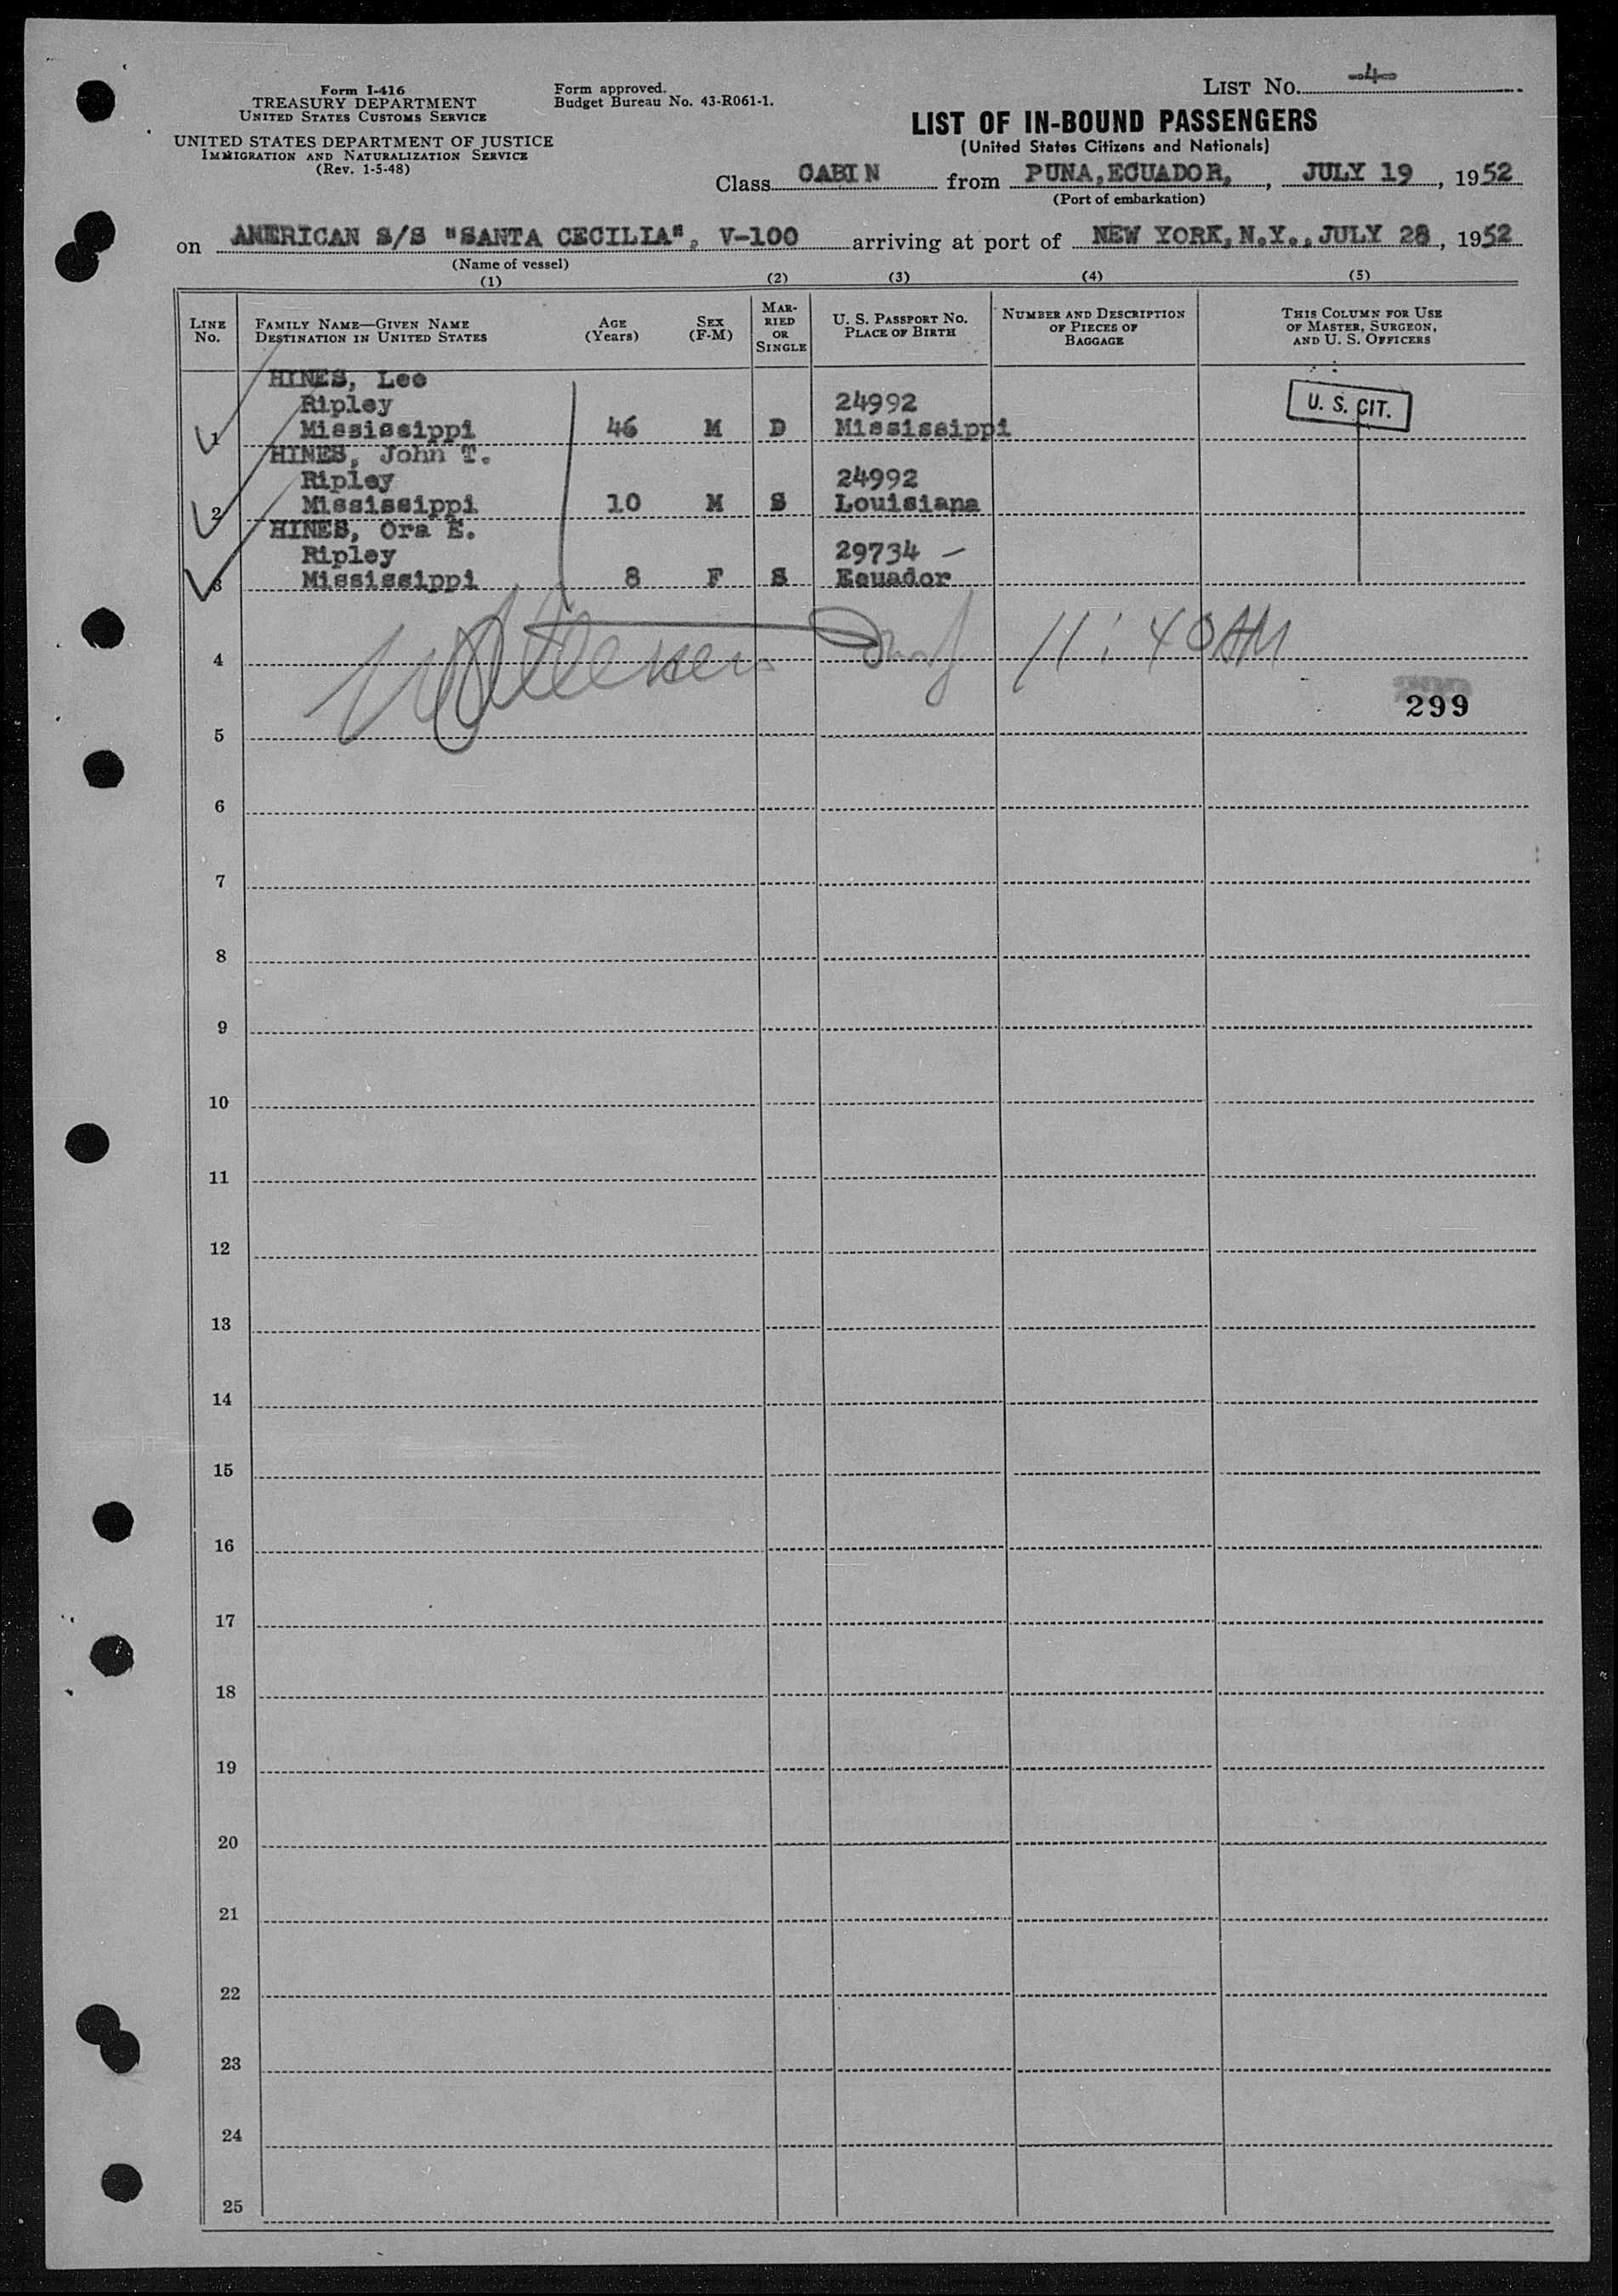 Form I-416
TREASURY DEPARTMENT
UNITED STATES CUSTOMS SERVICE
UNITED STATES DEPARTMENT OF JUSTICE
IMMIGRATION AND NATURALIZATION SERVICE
(Rev. 1-5-48)
Form approved.
Budget Bureau No. 43-R061-1.
LIST NO. -4-
LIST OF IN-BOUND PASSENGERS
(United States Citizens and Nationals)
Class CABIN from PUNA, ECUADOR, , JULY 19, 1952
(Port of embarkation)
on AMERICAN S/S "SANTA CECILIA", V-100 arriving at port of NEW YORK, N.Y., JULY 28, 1952
(Name of vessel)
(1) (2) (3) (4) (5)
LINE NO. FAMILY NAME—GIVEN NAME DESTINATION IN UNITED STATES AGE (Years) SEX (F-M) MARRIED OR SINGLE U. S. PASSPORT NO. PLACE OF BIRTH NUMBER AND DESCRIPTION OF PIECES OF BAGGAGE THIS COLUMN FOR USE OF MASTER, SURGEON, AND U. S. OFFICERS
HINES, Lee
Ripley 24992 U. S. CIT.
1 Mississippi 46 M D Mississippi
HINES, John T.
Ripley 24992
2 Mississippi 10 M S Louisiana
HINES, Ora E.
Ripley 29734 —
3 Mississippi 8 F S Ecuador
11:40 AM
4
299
5
6
7
8
9
10
11
12
13
14
15
16
17
18
19
20
21
22
23
24
25